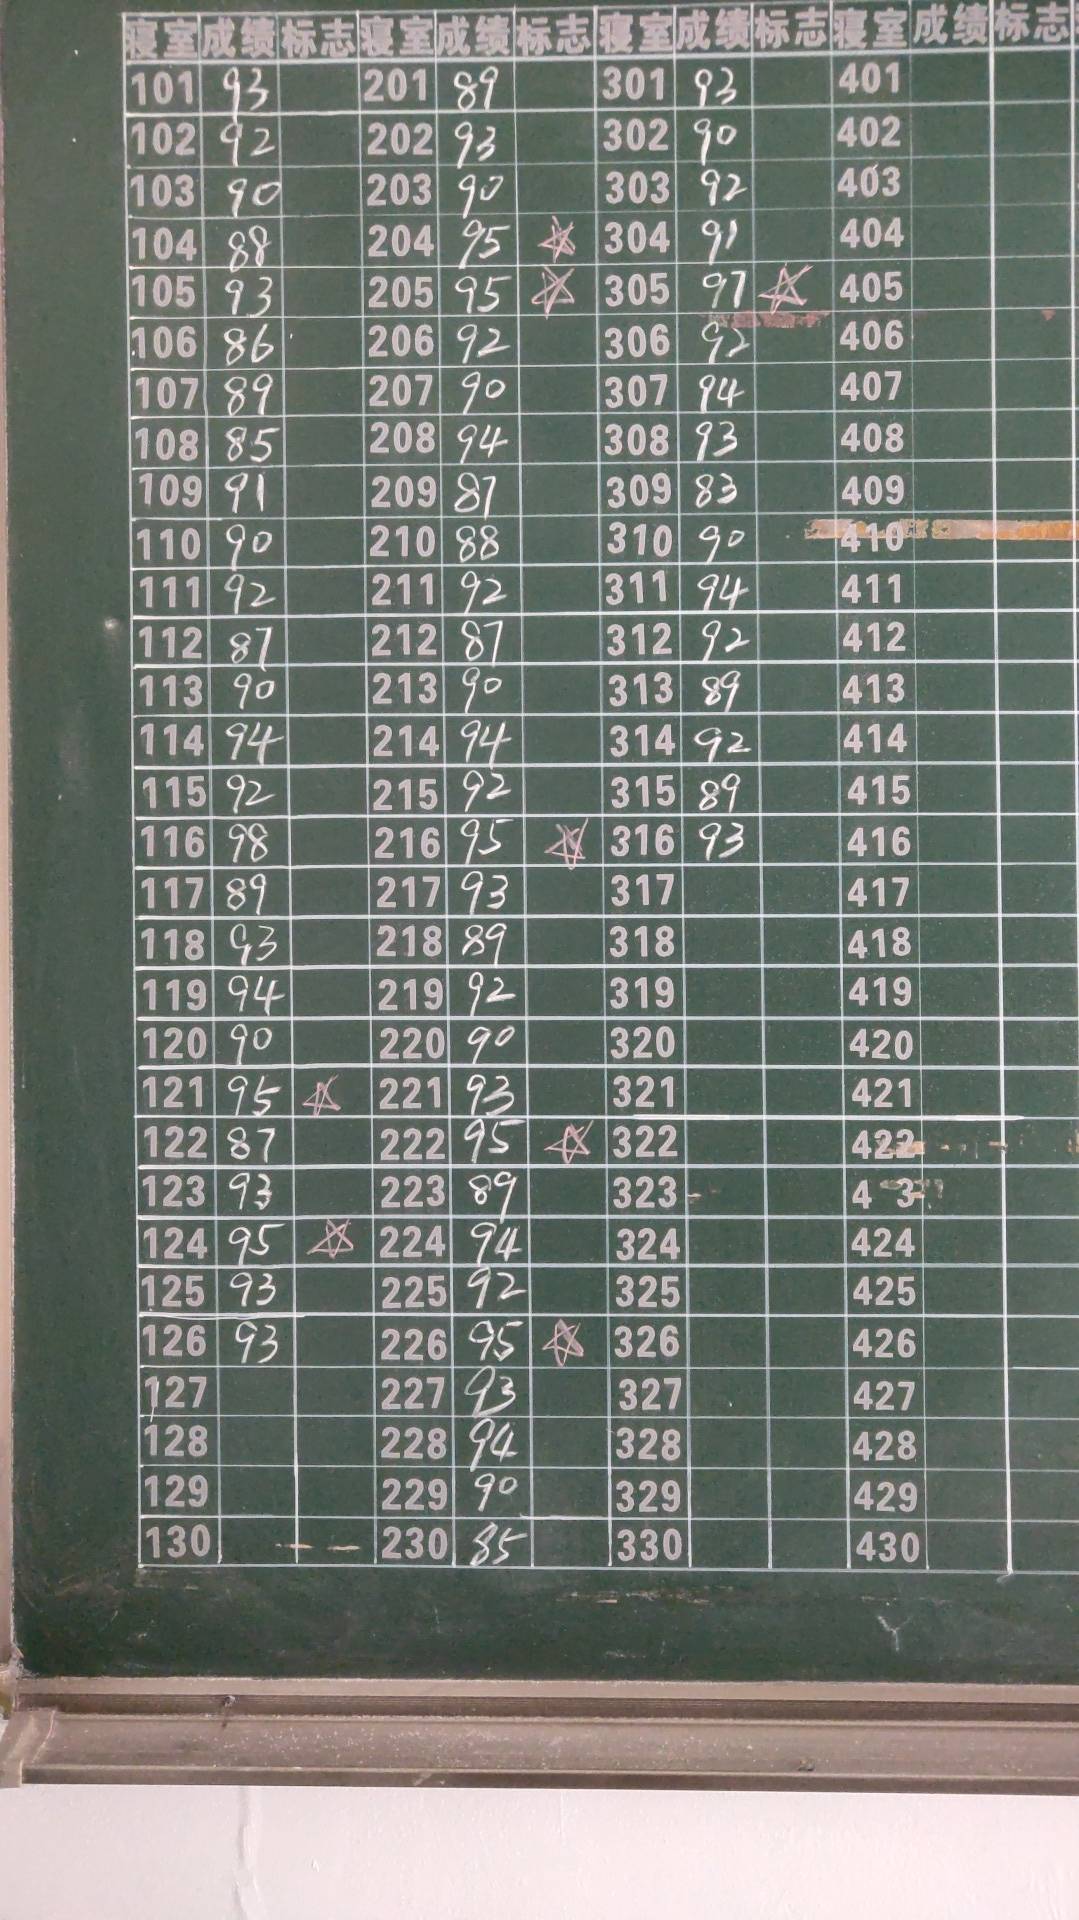 寝室 成绩 标志 寝室 成绩 标志 寝室 成绩 标志 寝室 成绩 标志
101 93 201 89 301 93 401
102 92 202 93 302 90 402
103 90 203 90 303 92 403
104 88 204 95 ☆ 304 91 404
105 93 205 95 ☆ 305 97 ☆ 405
106 86 206 92 306 92 406
107 89 207 90 307 94 407
108 85 208 94 308 93 408
109 91 209 87 309 83 409
110 90 210 88 310 90 410
111 92 211 92 311 94 411
112 87 212 87 312 92 412
113 90 213 90 313 89 413
114 94 214 94 314 92 414
115 92 215 92 315 89 415
116 98 216 95 ☆ 316 93 416
117 89 217 93 317 417
118 93 218 89 318 418
119 94 219 92 319 419
120 90 220 90 320 420
121 95 ☆ 221 93 321 421
122 87 222 95 ☆ 322 422
123 93 223 89 323 4 3
124 95 ☆ 224 94 324 424
125 93 225 92 325 425
126 93 226 95 ☆ 326 426
127 227 93 327 427
128 228 94 328 428
129 229 90 329 429
130 230 85 330 430